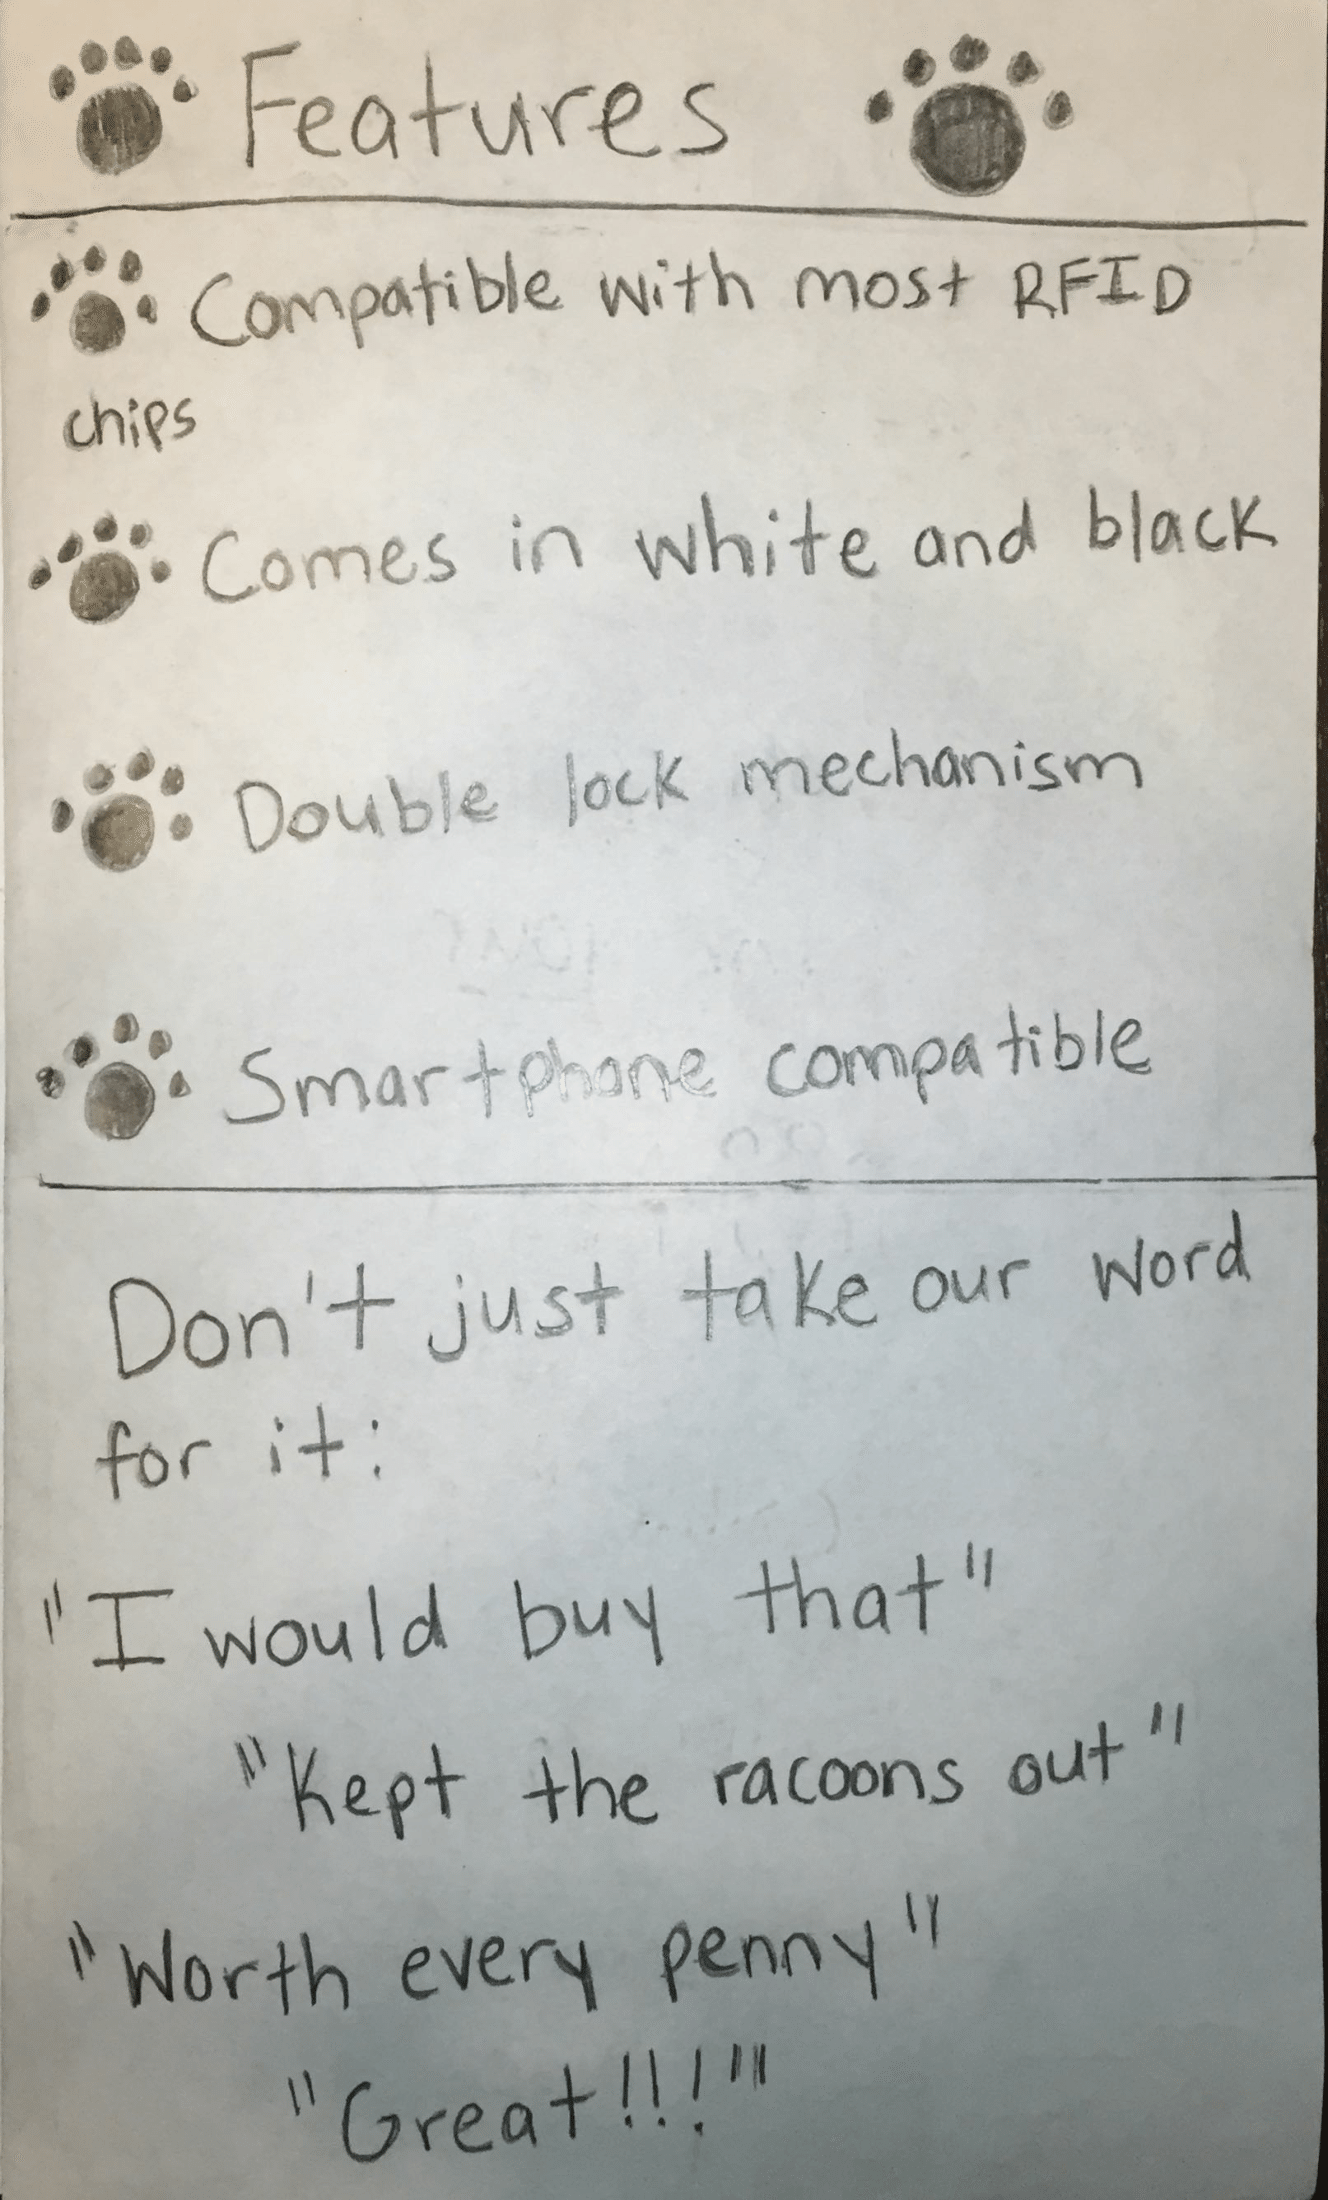 Features
Compatible with most RFID
chips
Comes in white and black
Double lock mechanism
Smartphone compatible
Don't just take our word
for it:
"I would buy that"
"Kept the racoons out"
"Worth every penny"
"Great!!!"